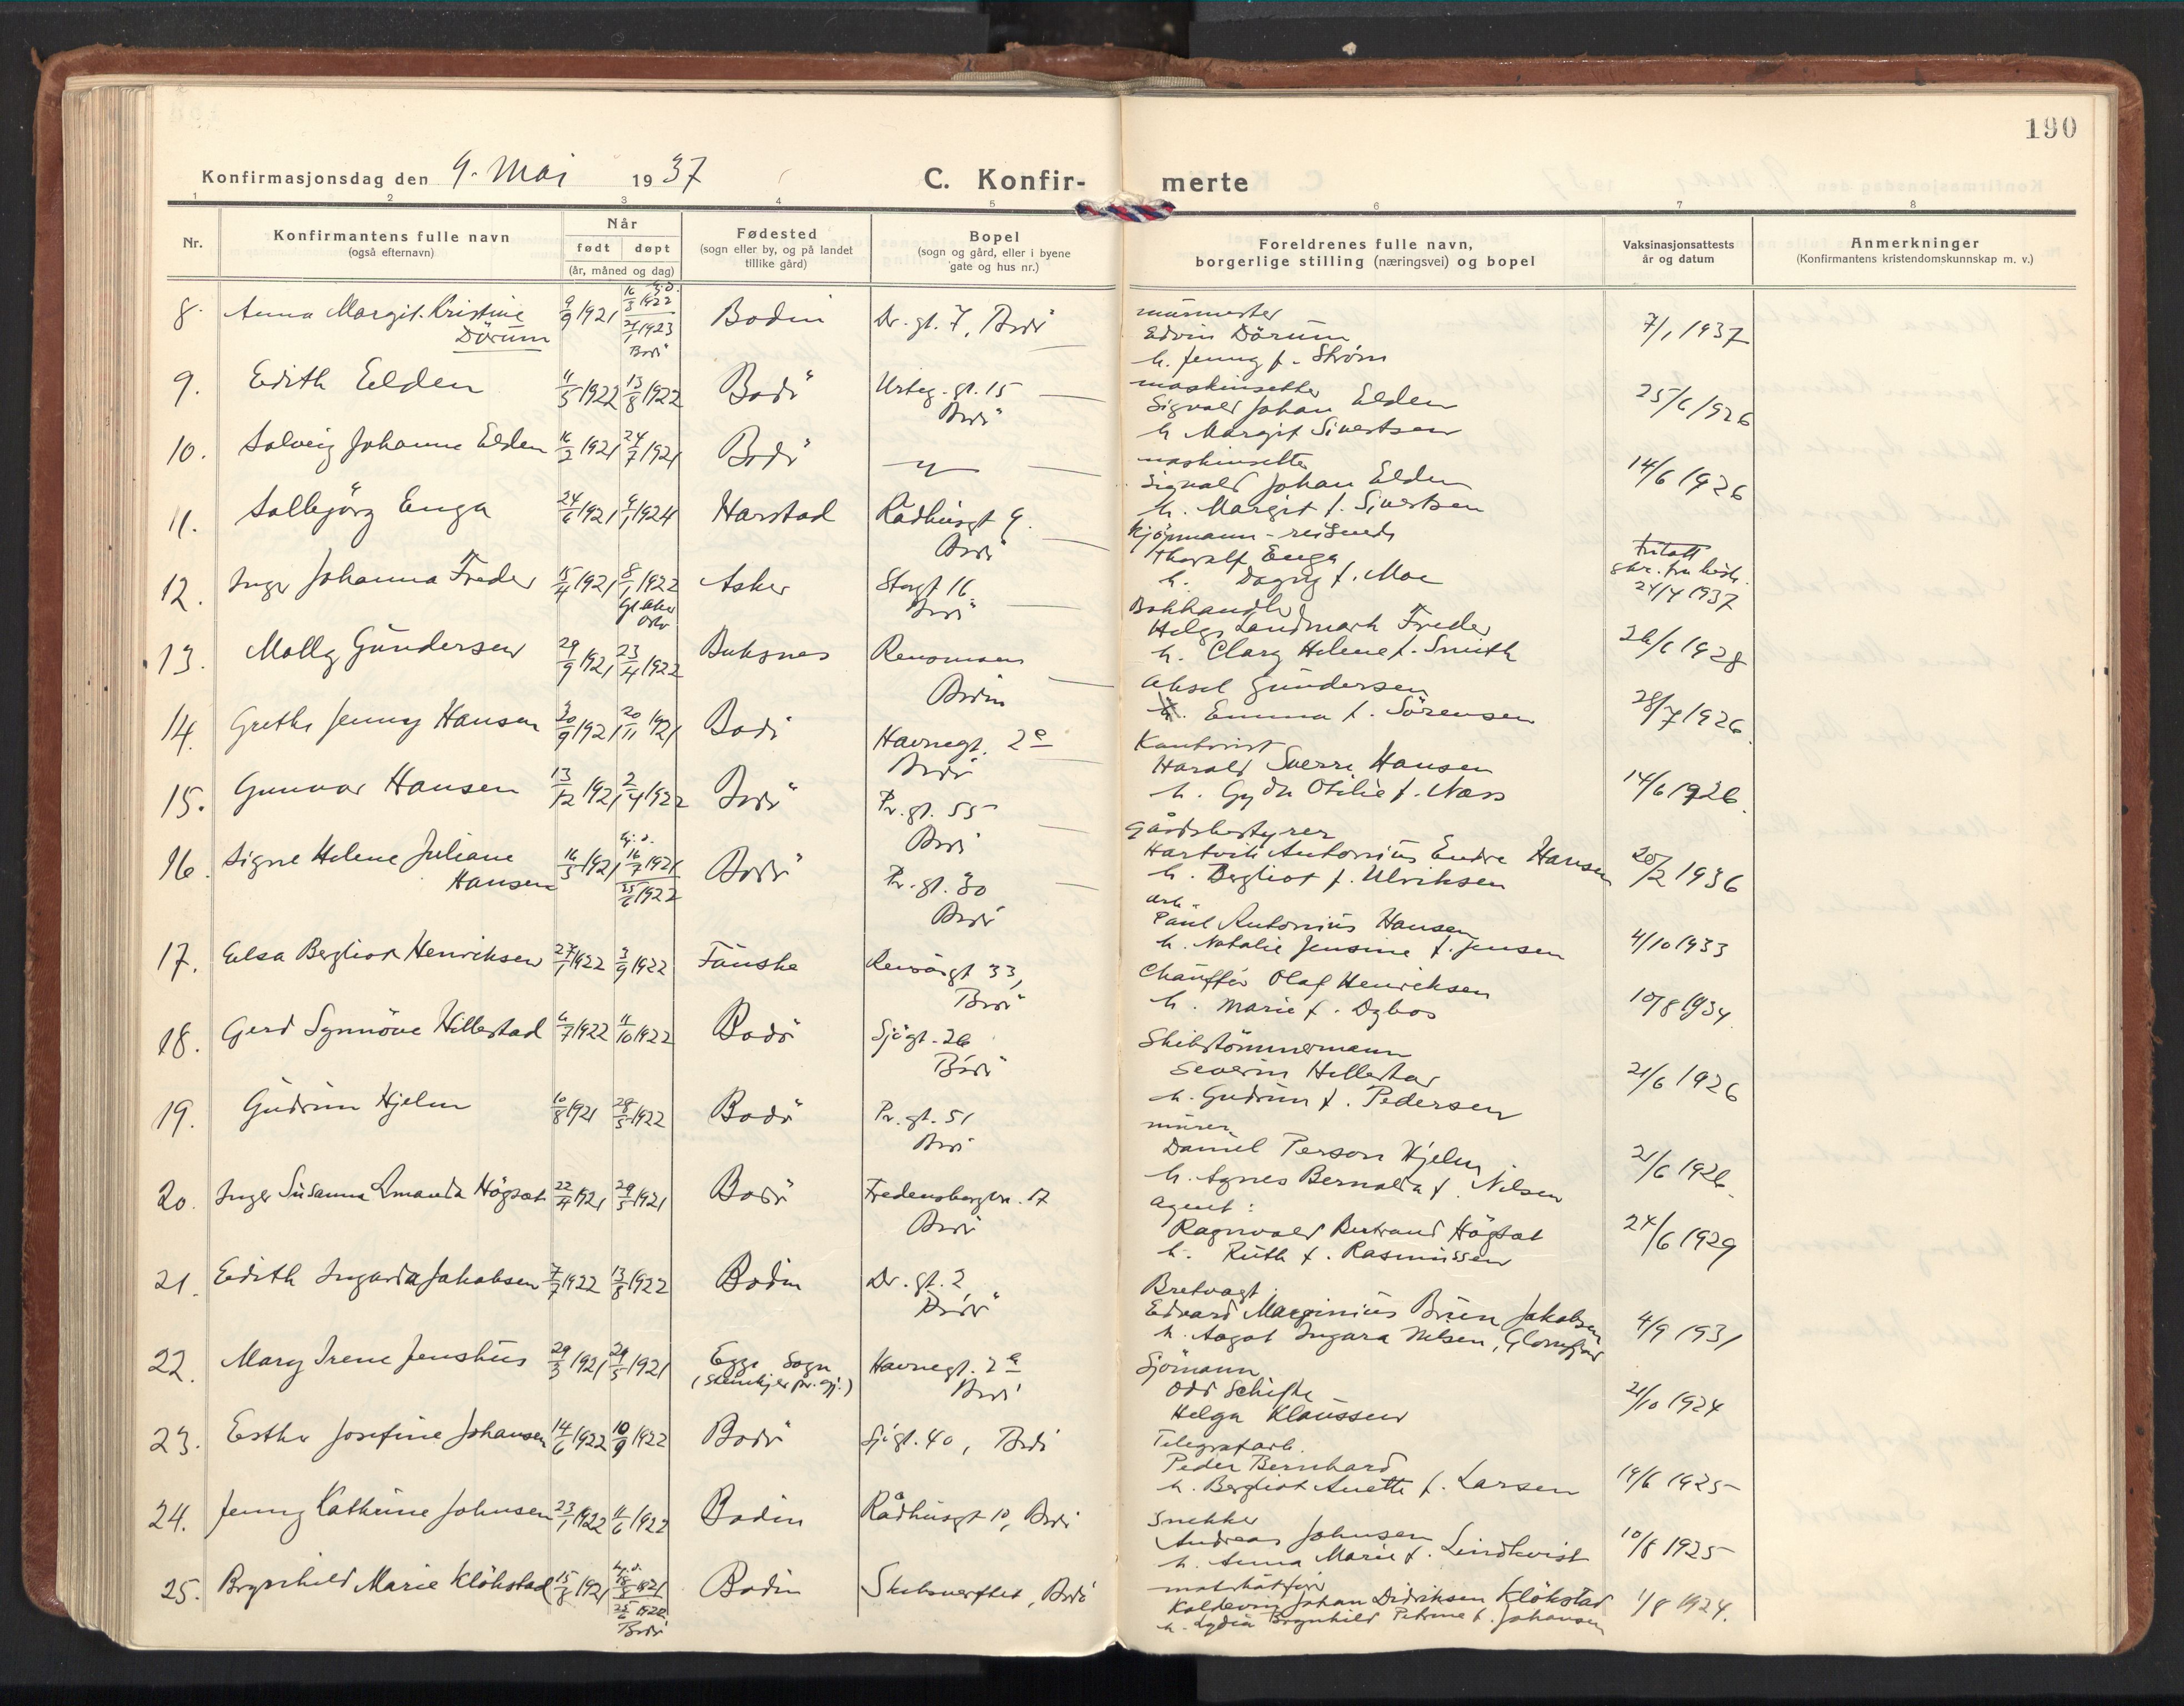 190
Konfirmasjonsdag den 9. Mai 1937
C. Konfir- merte
1 2 3 4 5 6 7 8
Nr.
Konfirmantens fulle navn
(også efternavn)
Når
født døpt
(år, måned og dag)
Fødested
(sogn eller by, og på landet
tillike gård)
Bopel
(sogn og gård, eller i byene
gate og hus nr.)
Foreldrenes fulle navn,
borgerlige stilling (næringsvei) og bopel
Vaksinasjonsattests
år og datum
Anmerkninger
(Konfirmantens kristendomskunnskap m. v.)
8. Anna Margit Kristine
Dörum
9/9 1921
hj.d.
16/3 1922
1923
Bodö
Bodin
Dr. gt. 7, Bodö
murmester
Edvin Dörum
h. Jenny f. Ström
7/1 1937
9. Edith Elden
11/5 1922 13/8 1922
Bodö
Urteg. gt. 15
Bodö
maskinsetter
Sigvald Johan Elden
h Margit Sivertsen
25/6 1926
10. Solveig Johanne Elden
16/2 1921 24/7 1921
Bodö
maskinsetter
Sigvald Johan Elden
h. Margit f. Sivertsen
14/6 1926
11. Solbjörg Enga
24/6 1921 6/1 1924
Harstad
Rådhusgt 9.
Bodö
Kjöpmann - reisende
Thoralf Enga
h. Dagny f. Moe
Fritatt
24/4 1937
12. Inger Johanna Freder
15/4 1921 8/1 1922
Asker
Storgt 16.
Bodö
Bokhandler
Helge Landmark Freder
h. Clary Helene f. Smith
26/6 1928
13. Molly Gundersen
29/9 1921 23/4 1922
Buksnes
Rensmoen
Bodin
Aksel Gundersen
h. Emma f. Sörensen
28/7 1926
14. Grethe Jenny Hansen
30/9 1921 20/11 1921
Bodö
Havnegt. 2e
Bodö
Kontorist
Harald Sverre Hansen
h. Gyda Otilie f. Næss
14/6 1926
15. Gunvor Hansen
13/12 1921 2/4 1922
Bodö
Pr. gt. 55
Bodö
Gårdsbestyrer
Hartvik Antonius Endre Hansen
h. Bergliot f. Ulriksen
20/2 1936
16. Signe Helene Juliane
Hansen
16/5 1921
hj. d.
16/7 1921
25/6 1922
Bodö
Pr. gt. 30
Bodö
arb.
Paul Antonius Hansen
h. Natalie Jensine f. Jensen
4/10 1933
17. Elsa Bergliot Henriksen
27/1 1922 3/9 1922
Fauske
33,
Bodö
Chauffør Olaf Henriksen
h. Marie f. Dybos
10/8 1934
18. Gerd Synnöve Hillestad
6/7 1922 11/10 1922
Bodö
Sjögt. 26
Bodö
Skibstömmermann
Severin Hillestad
h. Gudrun f. Pedersen
21/6 1926
19. Gudrun Hjelm
10/8 1921 28/5 1922
Bodö
Pr. gt. 51
Bodö
murer
Daniel Person Hjelm
h. Agnes Bernalda f. Nilsen
21/6 1926
20. Inger Susanna Amanda Högset
22/4 1921 29/5 1921
Bodö
Fredensborgvn. 17
Bodö
agent:
Ragnvald Bertrand Högset
h. Ruth f. Rasmussen
24/6 1929
21. Edith Ingarda Jakobsen
7/7 1922 13/8 1922
Bodin
Dr. gt. 2
Bodö
Edvard Marginius Brun Jakobsen
h. Aagot Ingara Nilsen, Glomfjord
4/9 1931
22. Mary Irene Jenshus
29/3 1921 29/5 1921
Egge Sogn
(Steinkjer pr. gj.)
Havnegt. 2e
Bodö
Sjömann
Odd Schifte
Helga Klaussen
21/10 1924
23. Esther Josefine Johansen
14/6 1922 10/9 1922
Bodö
Sjögt. 40, Bodö
Telegrafarb.
Peder Bernhard
h. Bergliot Anette f. Larsen
19/6 1925
24. Jenny Kathrine Johnsen
23/1 1922 11/6 1922
Bodin
Rådhusgt 10, Bodö
Snekker
Andreas Johnsen
h. Anna Marie f. Lindkvist
10/8 1925
25. Brynhild Marie Klökstad
15/8 1921
hj.d.
18/8 1921
25/6 1922
Bodö
Bodin
Skibsverftet, Bodö
Koldevin Johan Didriksen Klökstad
h. Lydia Brynhild Petrine f. Johansen
1/8 1924.